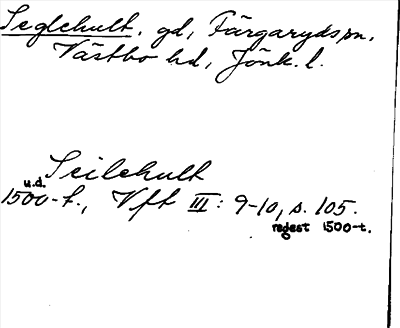 Seglehult, gd, Färgaryds sn,
Västbo hd, Jönk. l.
Seilehult
u.d.
1500-t., Vft III: 9-10, s. 105.
regest 1500-t.